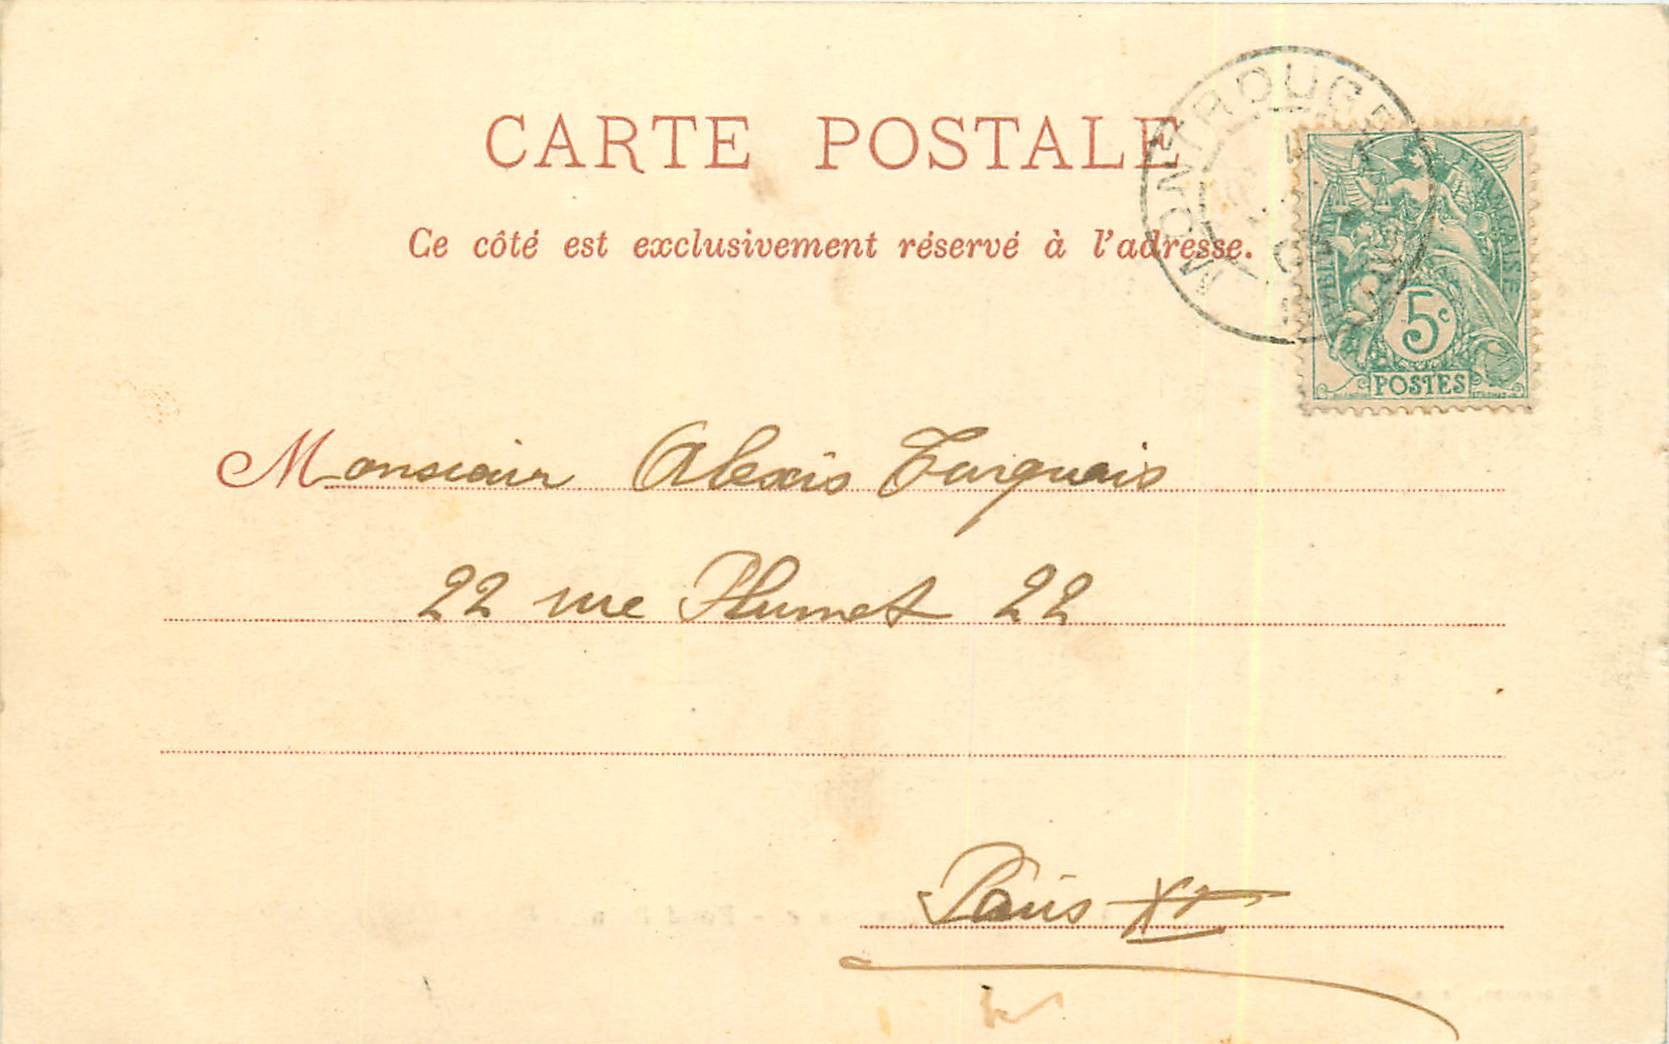 CARTE POSTALE
Ce côté est exclusivement réservé à l'adresse.
MONTROUGE
FRANÇAISE
5c
POSTES
Monsieur Alexis
22 rue Plumet 22
Paris